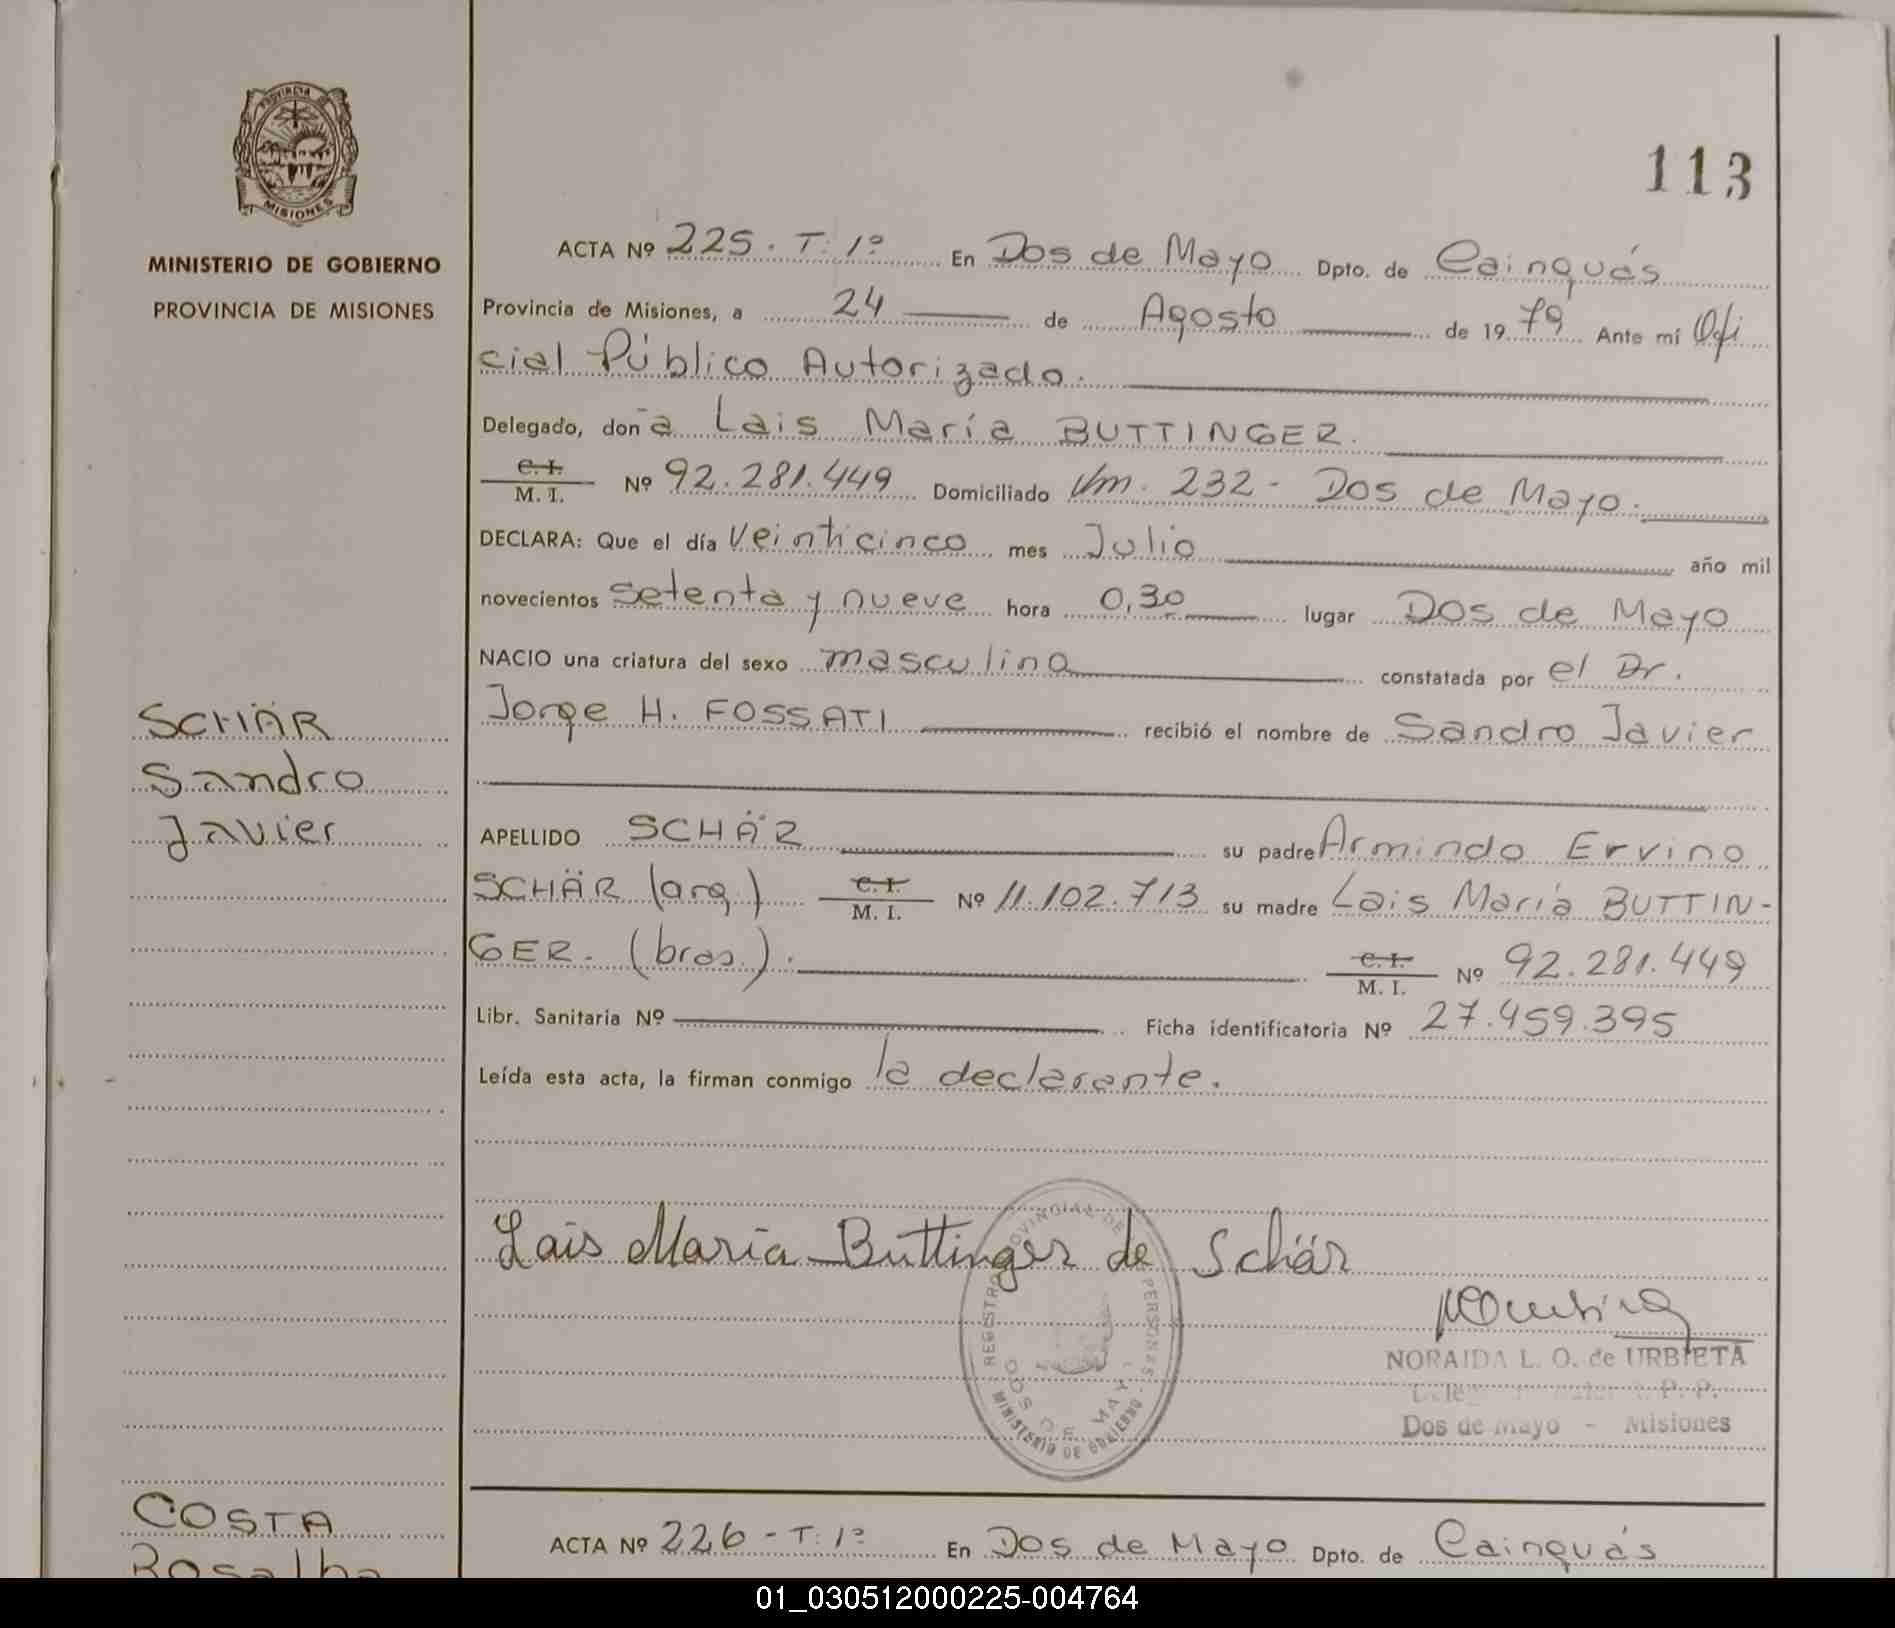 PROVINCIA DE
MISIONES
MINISTERIO DE GOBIERNO
PROVINCIA DE MISIONES
113
ACTA Nº 225. T: 1º En Dos de Mayo Dpto. de Cainguás
Provincia de Misiones, a 24 de Agosto de 1979 Ante mí Ofi
cial Público Autorizado.
Delegado, donã Lais María BUTTINGER.
C.I. M.I. Nº 92.281.449 Domiciliado Vm. 232 - Dos de Mayo.
DECLARA: Que el día Veinticinco mes Julio año mil
novecientos setenta y nueve hora 0,30 lugar Dos de Mayo
NACIO una criatura del sexo masculino constatada por el Dr.
Jorge H. FOSSATI recibió el nombre de Sandro Javier
SCHÄR
Sandro
Javier
APELLIDO SCHÄR su padre Armindo Ervino
SCHÄR (arg.) C.I. M.I. Nº 11.102.713 su madre Lais María BUTTIN-
GER. (bras.). C.I. M.I. Nº 92.281.449
Libr. Sanitaria Nº Ficha identificatoria Nº 27.459.395
Leída esta acta, la firman conmigo la declarante.
Lais Maria Buttinger de Schär
REGISTRO PROVINCIAL DE PERSONAS
DOS DE MAYO
MINISTERIO DE GOBIERNO
NORAIDA L. O. de URBIETA
R. P. P.
Dos de Mayo - Misiones
COSTA
Rosalba
ACTA Nº 226 - T: 1º En Dos de Mayo Dpto. de Cainguás
01_030512000225-004764